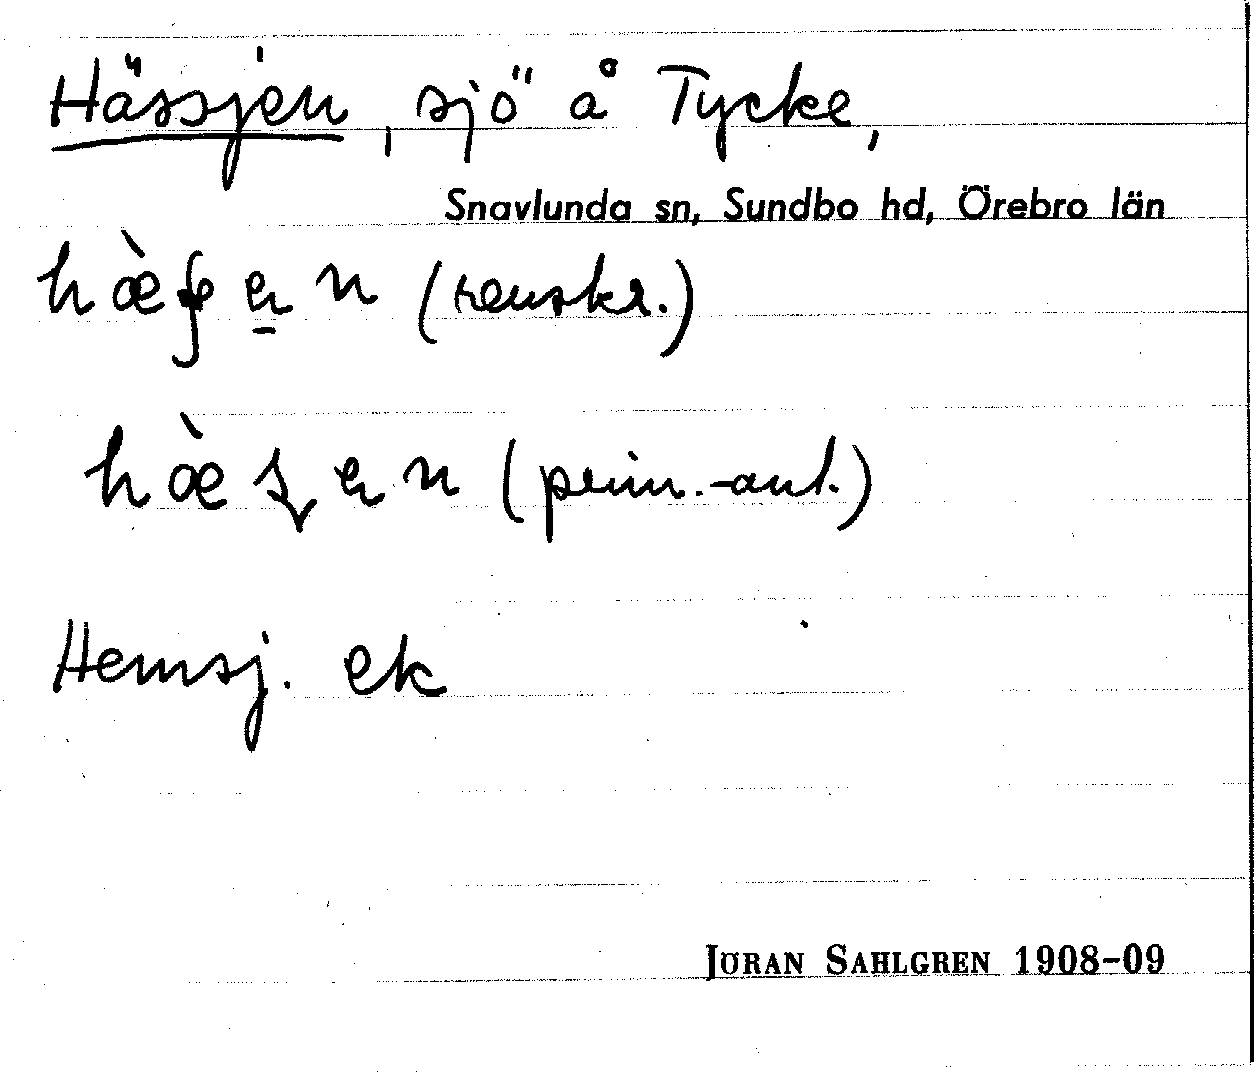 Hässjen, sjö å Tycke,
Snavlunda sn, Sundbo hd, Örebro län
(renskr.)
(prim.-ant.)
Hemsj. ek
JÖRAN SAHLGREN 1908–09